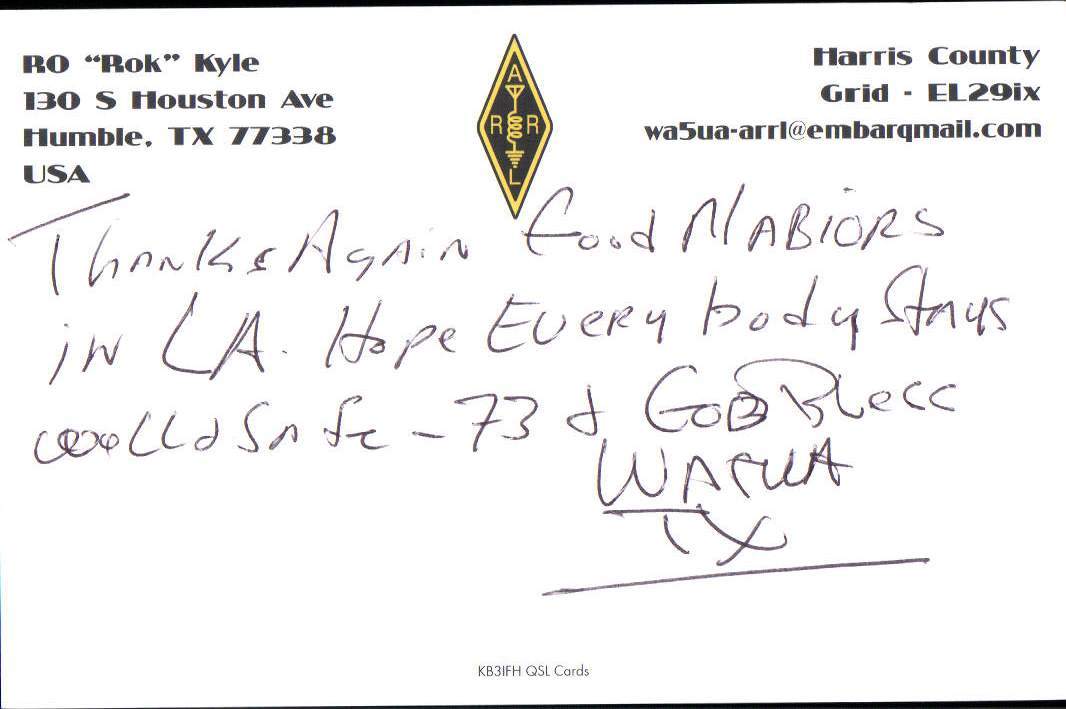 RO “Rok” Kyle
130 S Houston Ave
Humble, TX 77338
USA
A
R R
L
Harris County
Grid - EL29ix
wa5ua-arrl@embarqmail.com
Thanks Again Good NABIORS
in LA. Hope Every body Stays
well & Safe - 73 & GOD Bless
WA5UA
TX
KB3IFH QSL Cards